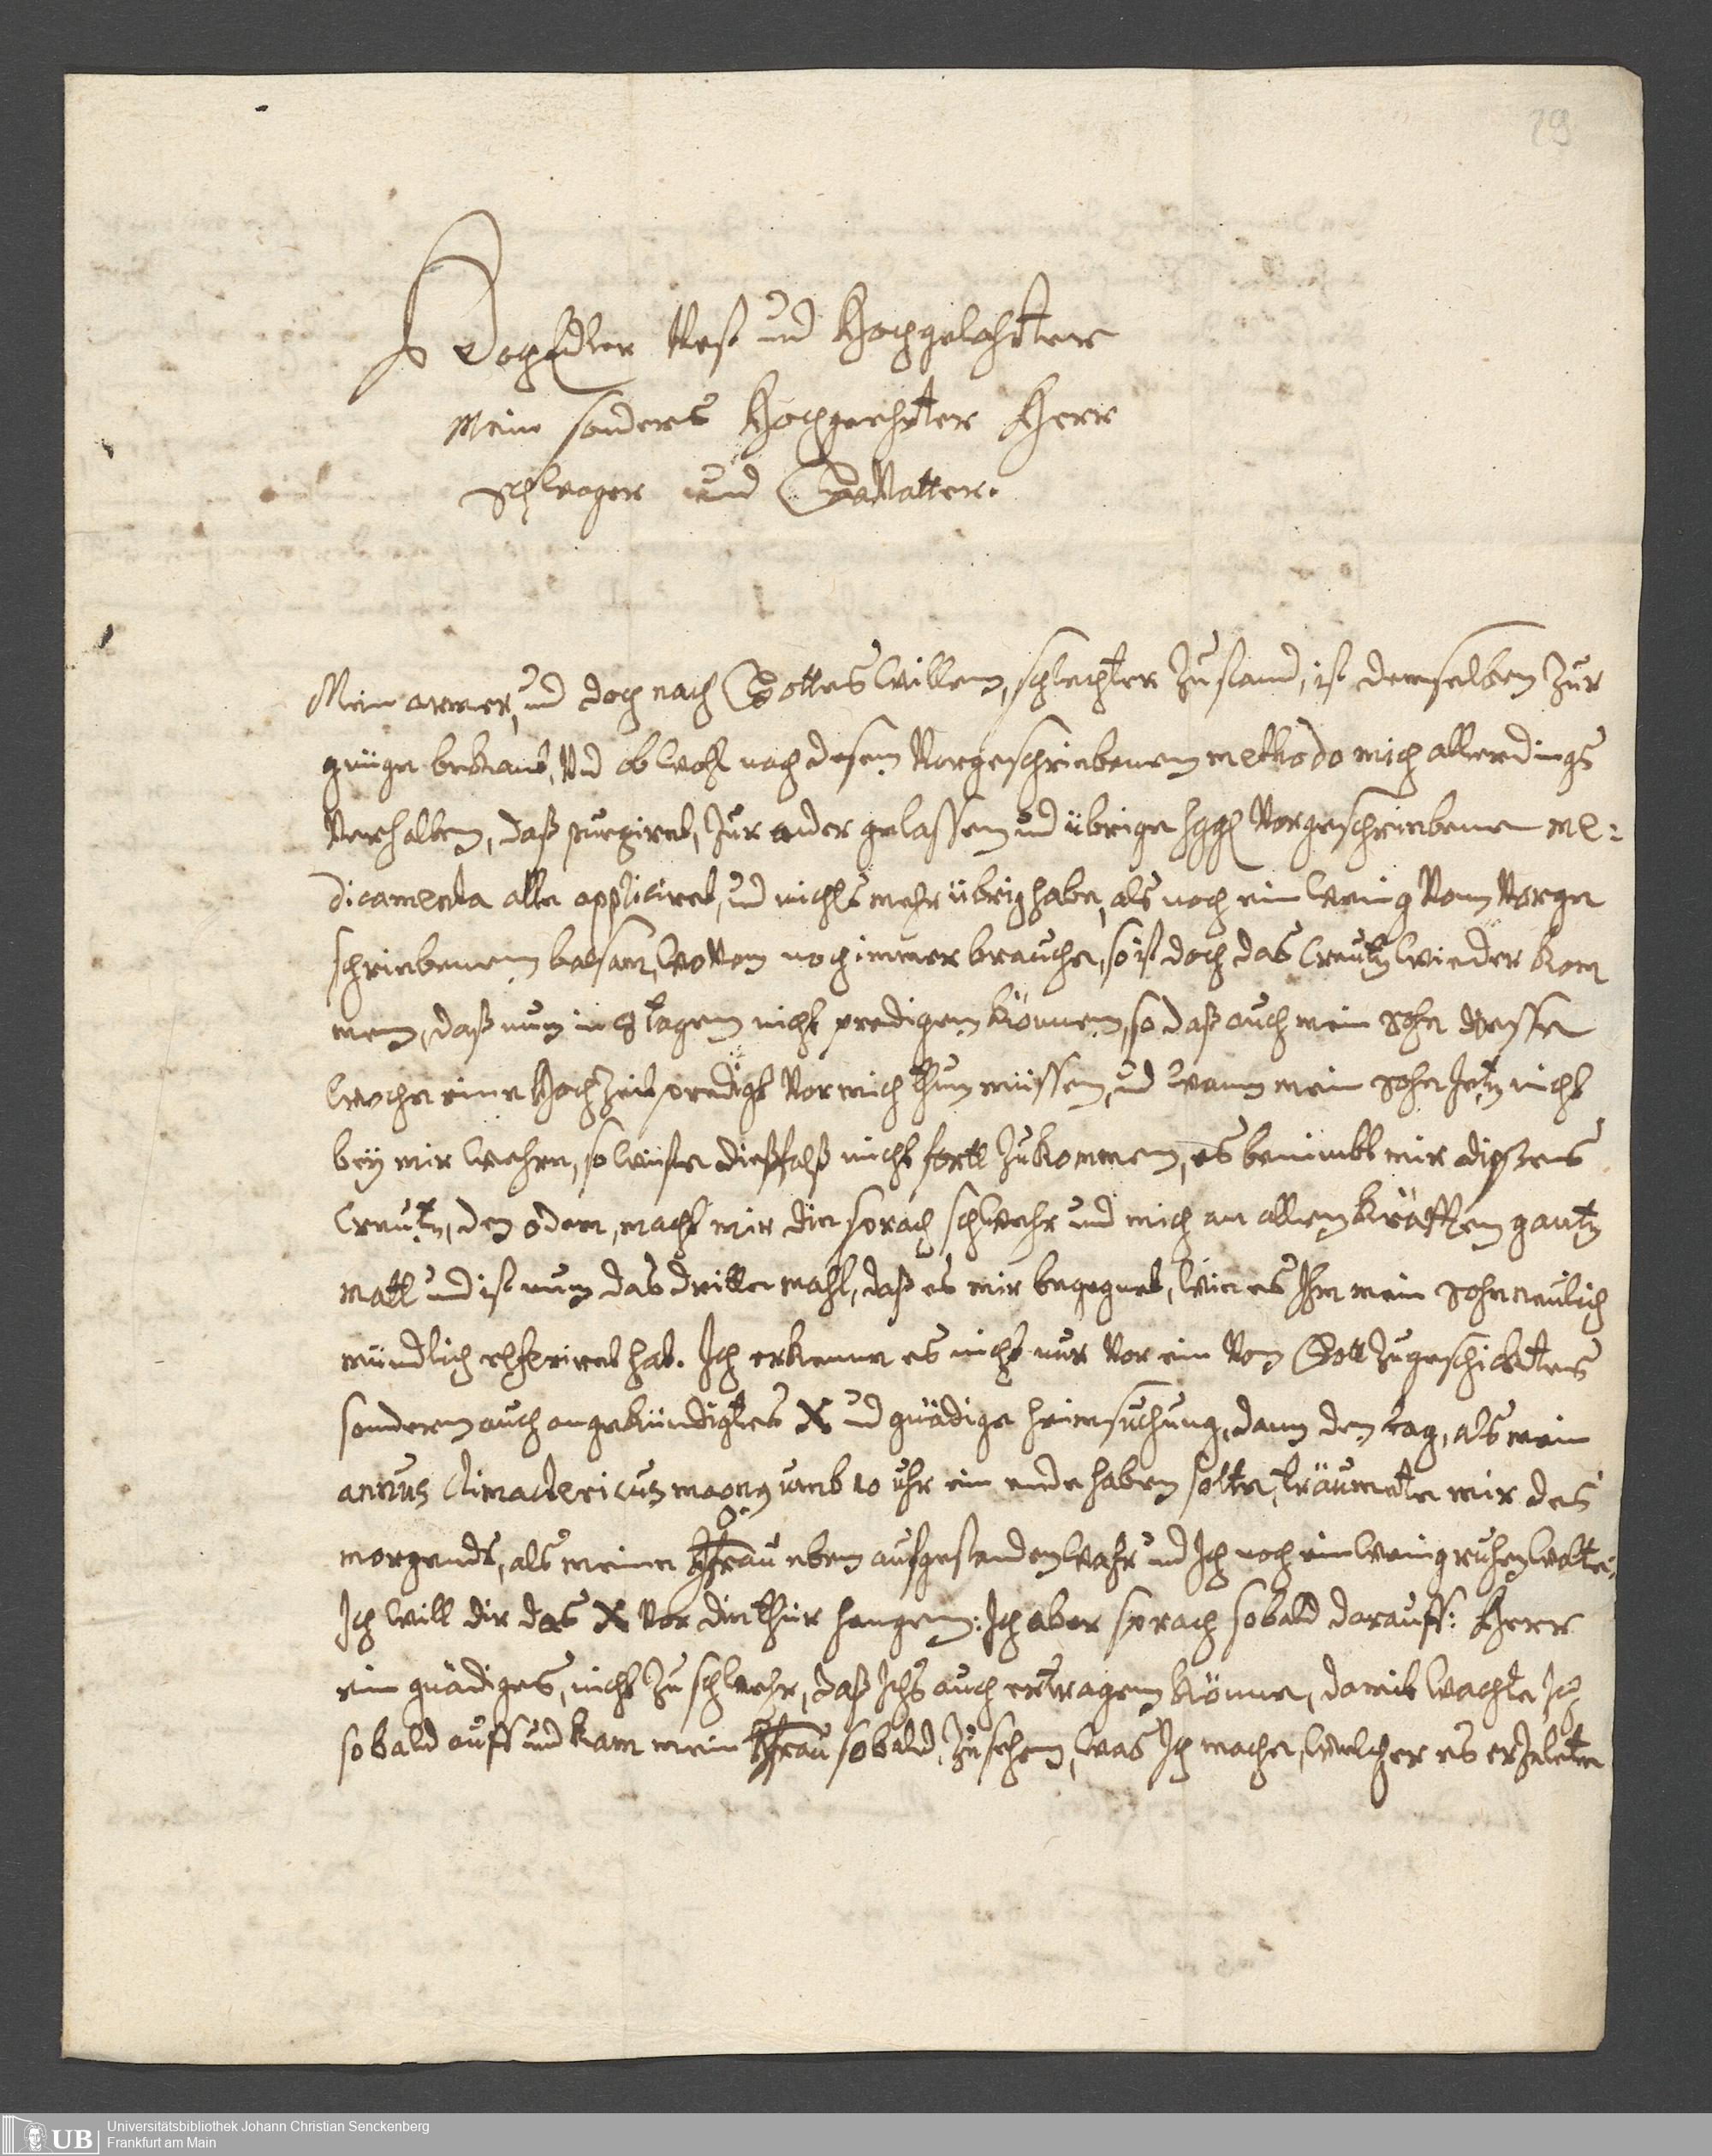 29
HochEdler Vest und Hochgelahrter
Mein sonders Hochgeehrter Herr
Schwager und GeVatter.
Mein armer, und doch nach Gottes willen, schlechter Zustand, ist demselben Zur
gnüge bekant, Und ob wohl nach dessen Vorgeschriebenem methodo mich allerdings
Verhalten, daß purgiret, Zur ader gelassen und übrige Vorgeschriebene me:
dicamenta alle appliciret, und nichts mehr übrig habe, als noch ein wenig Vom Vorge
schriebenem balsam, woVon noch immer brauche, so ist doch das Creutz wieder kom
men, daß nun in 8 tagen nicht predigen können, so daß auch mein Sohn diesse
woche eine Hochzeit predigt Vor mich thun müssen, und wann mein Sohn Jetz nicht
bey mir wehre, so wüste dießfalß nicht fortt Zukommen, es benimbt mir dieses
Creutz, den odem, macht mir die sprach schwehr und mich an allen Kräfften gantz
matt und ist nun das dritte mahl, daß es mir begegnet, wie es Ihm mein Sohn neulich
mündlich referiret hat. Ich erkenne es nicht nur Vor ein Von Gott Zugeschicktes
sonderen auch angekündigtes X und gnädige heimsuchung, dann den tag, als mein
annus climactericus magnus umb 10 uhr ein ende haben solte, träumete mir des
morgends, als meine Haußfrau eben aufgestanden wahr und Ich noch ein wenig ruhen wolte:
Ich will dir das X Vor die thür hangen: Ich aber sprach sobald darauff: Herr
ein gnädiges, nicht Zu schwehr, daß Ichs auch ertragen könne, damit wachte Ich
sobald auff und kam mein Haußfrau sobald, Zu sehen, was Ich mache, welcher es erZelete
Universitätsbibliothek Johann Christian Senckenberg
UB Frankfurt am Main